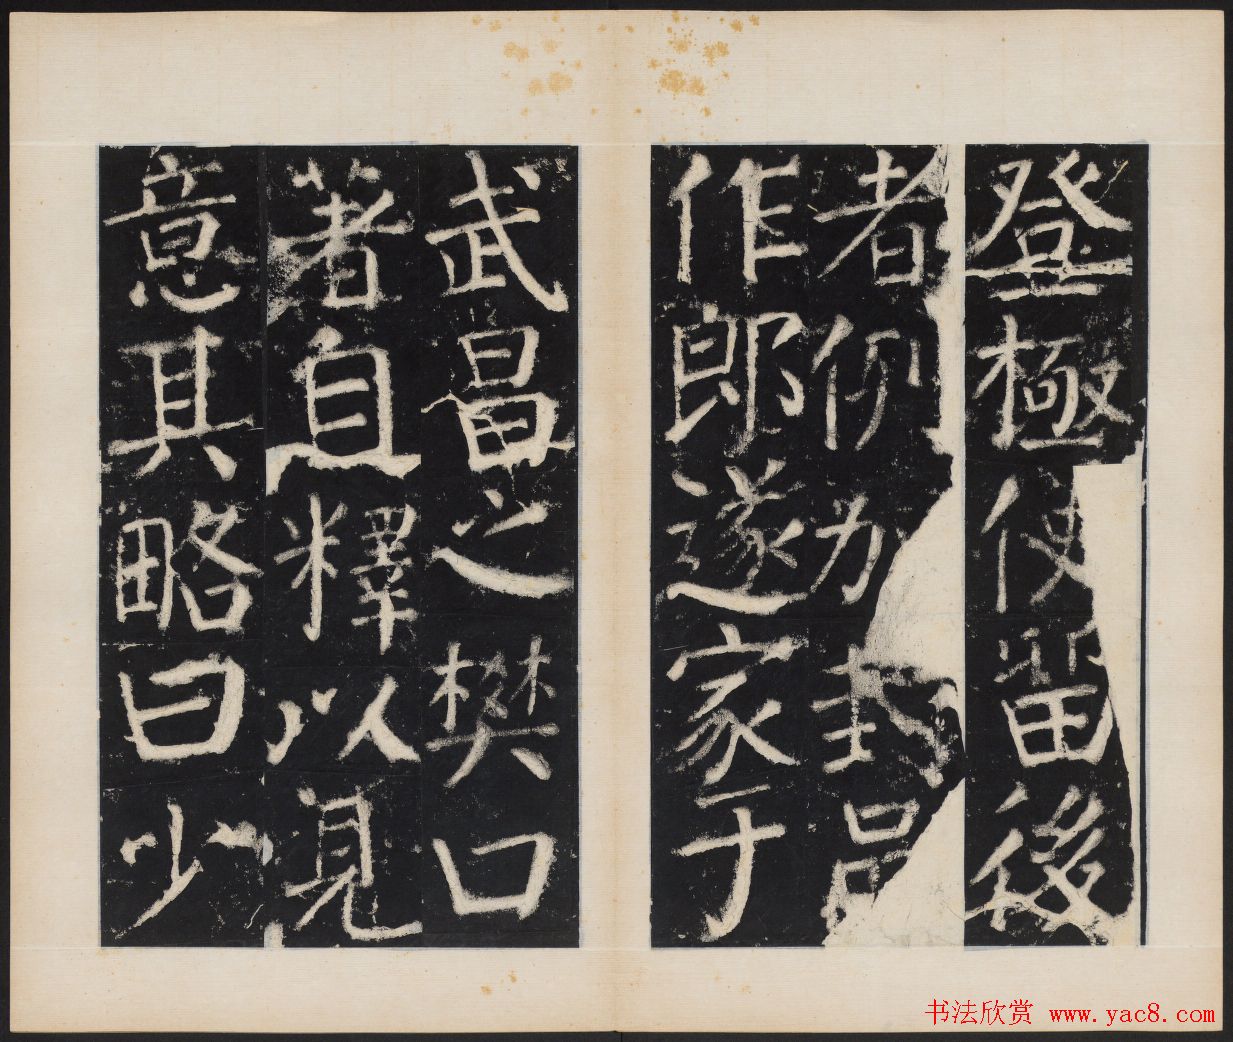 登極使留後
者例加封邑
作郎遂家于
武昌之樊口
著自釋以見
意其略曰少
书法欣赏 www.yac8.com